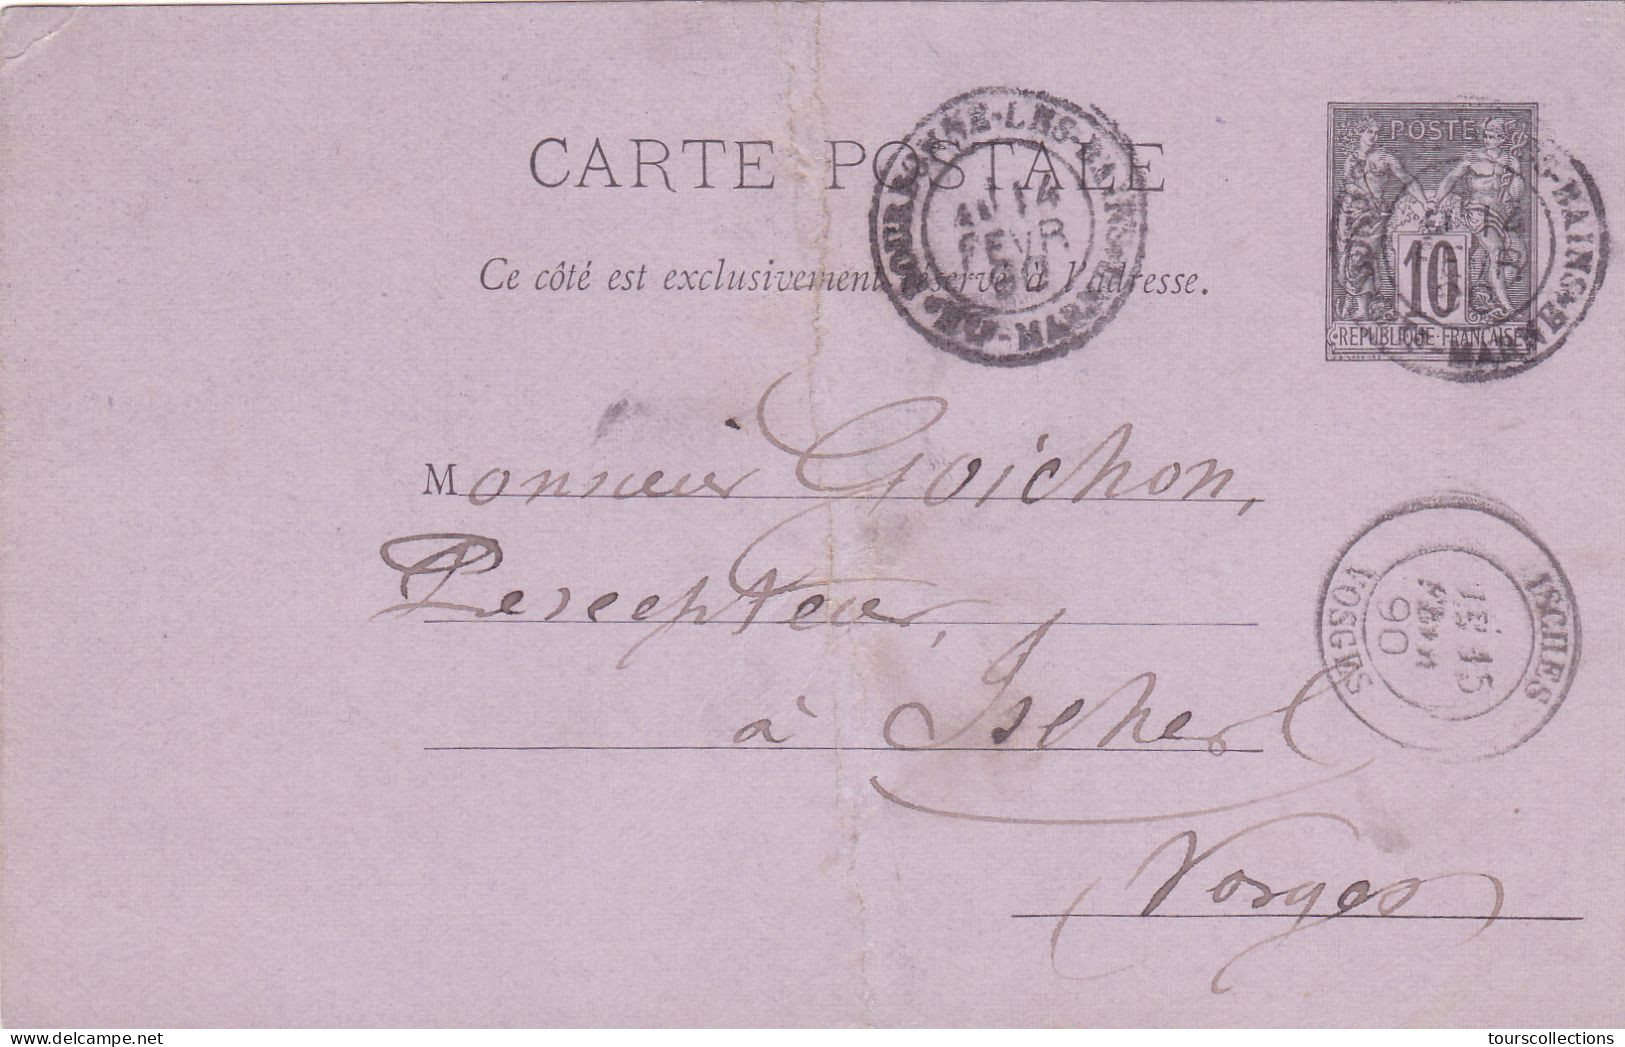 CARTE POSTALE
Ce côté est exclusivement réservé à l'adresse.
BOURBONNE-LES-BAINS
14
FEVR
90
Hte-MARNE
POSTE
10
REPUBLIQUE FRANÇAISE
BAINS
MARNE
Monsieur Goichon,
Percepteur,
à Isches
Vosges
ISCHES
15
90
VOSGES
delcampe.net
tourscollections